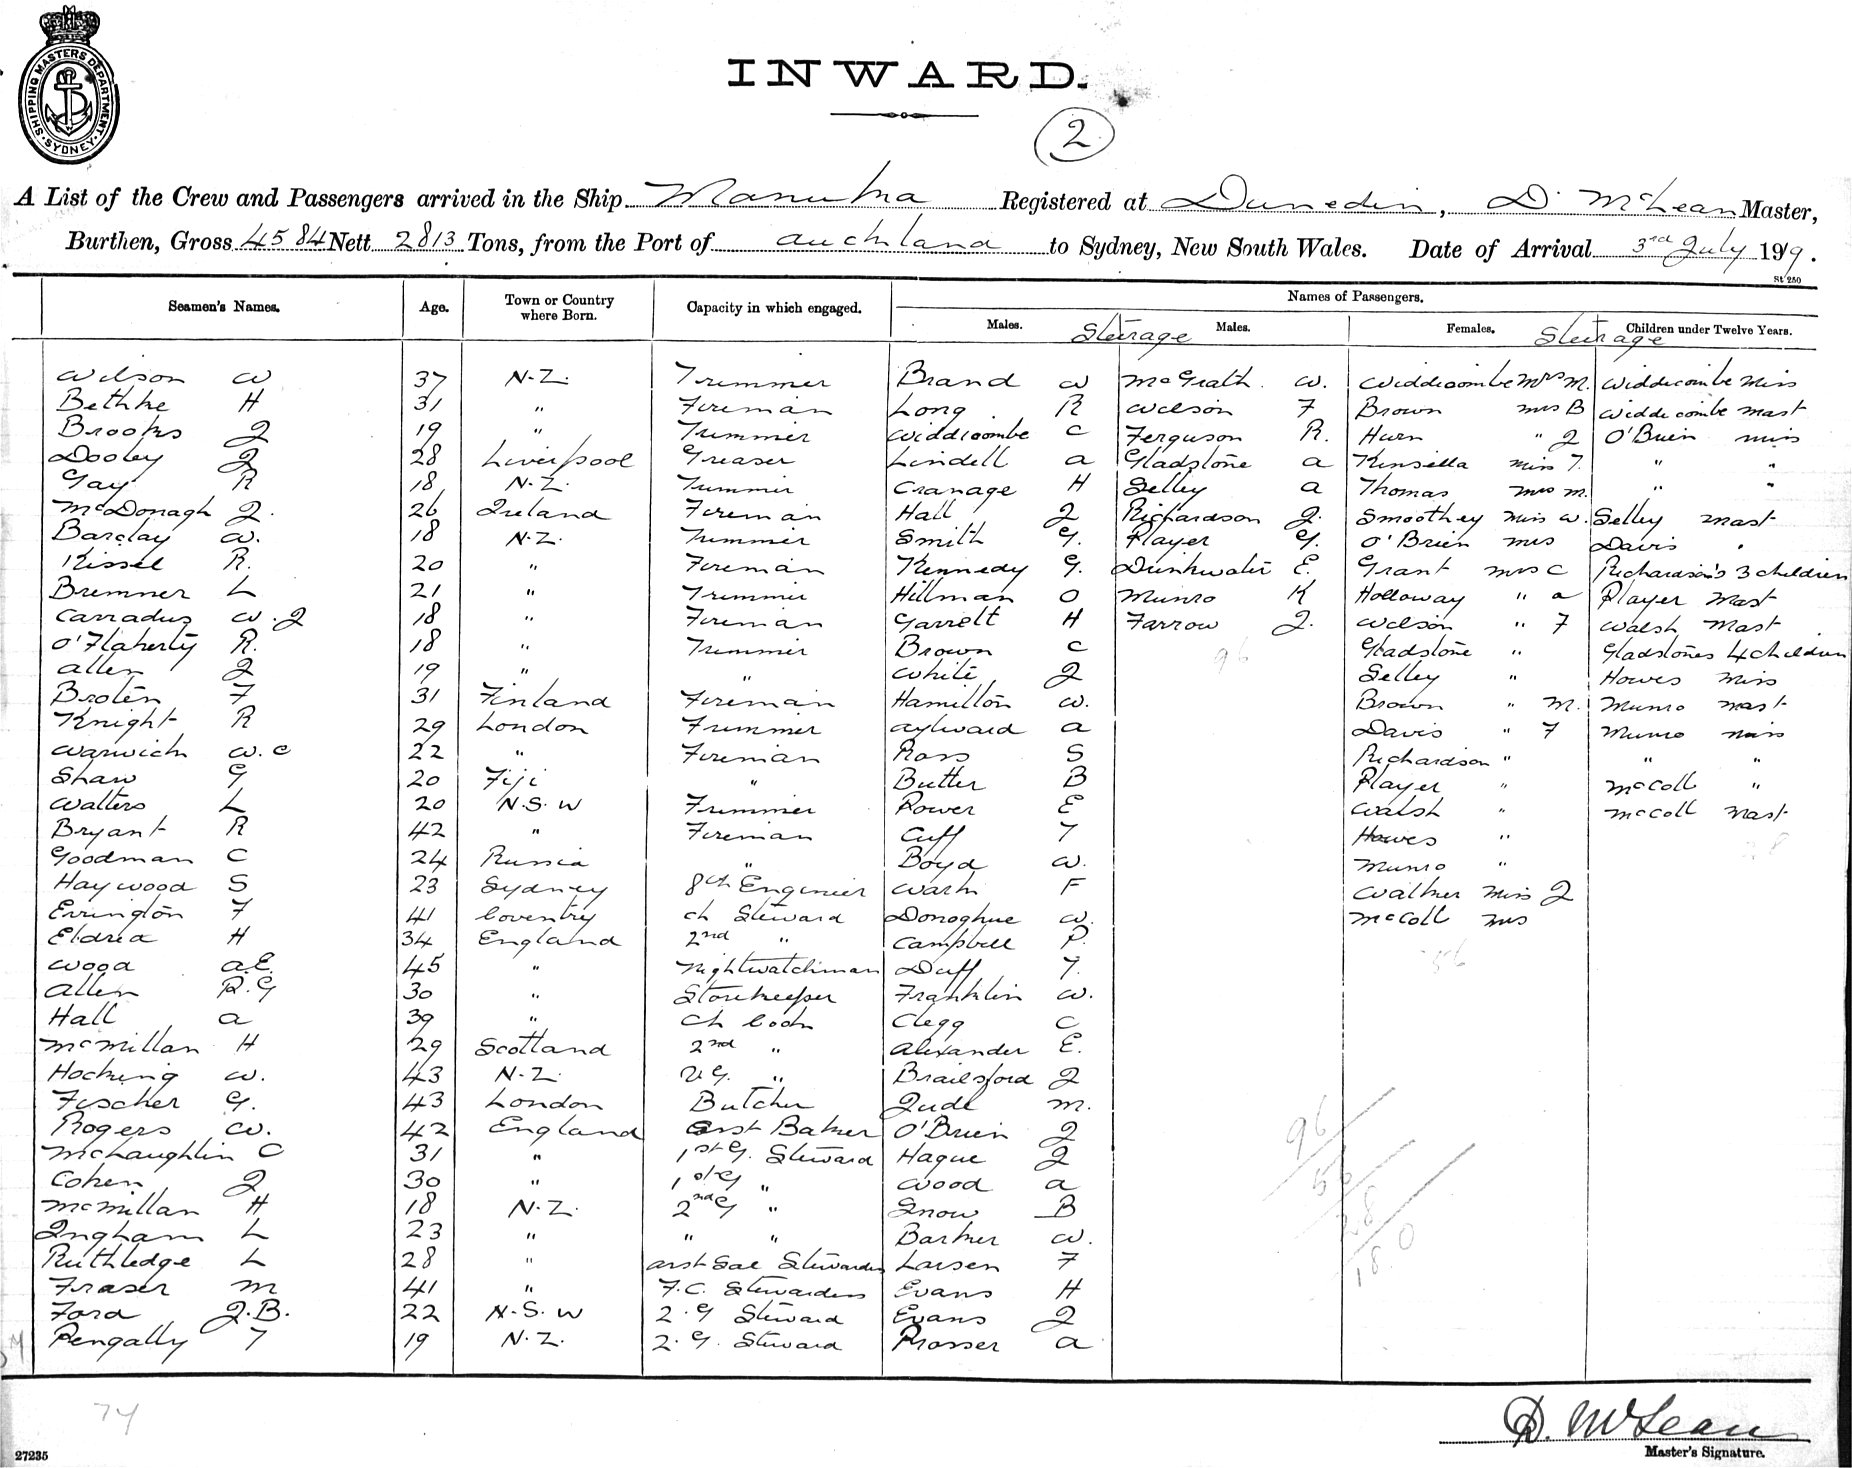 SHIPPING MASTERS DEPARTMENT. SYDNEY.
INWARD.
2
A List of the Crew and Passengers arrived in the Ship Manuka Registered at Dunedin, D. McLean Master,
Burthen, Gross 4584 Nett 2813 Tons, from the Port of Auckland to Sydney, New South Wales. Date of Arrival 3rd July 1919.
St 250
Seamen's Names. Age. Town or Country where Born. Capacity in which engaged. Names of Passengers.
Males. Steerage Males. Females. Steerage Children under Twelve Years.
Wilson W 37 N.Z. Trimmer Brand W McGrath W. Widdicombe Mrs M. Widdicombe Miss
Bethke H 31 " Fireman Long R Wilson F Brown Mrs B Widdicombe Mast
Brooks J 19 " Trimmer Widdicombe C Ferguson R. Hurn " J O'Brien Miss
Dooley J 28 Liverpool Greaser Lindell A Gladstone A Kinsella Miss T. " "
Gay R 18 N.Z. Trimmer Cranage H Selley A Thomas Mrs M. " "
McDonagh J. 26 Ireland Fireman Hall J Richardson J. Smoothey Miss W. Selley Mast
Barclay W. 18 N.Z. Trimmer Smith G. Player G. O'Brien Mrs Davis "
Kissel R. 20 " Fireman Kennedy G. Drinkwater E. Grant Mrs C Richardson's 3 children
Bremner L 21 " Trimmer Hillman O Munro K Holloway " A Player Mast
Carradus W.J 18 " Fireman Garrett H Farrow J. Wilson " F Walsh Mast
O'Flaherty R. 18 " Trimmer Brown C 96 Gladstone " Gladstones 4 children
Allen J 19 " " White J Selley " Howes Miss
Broten F 31 Finland Fireman Hamilton W. Brown " M. Munro Mast
Knight R 29 London Trimmer Aylward A Davis " F Munro Miss
Warwick W.C 22 " Fireman Ross S Richardson " " "
Shaw G 20 Fiji " Butter B Player " McColl "
Walters L 20 N.S.W Trimmer Power E Walsh " McColl Mast
Bryant R 42 " Fireman Cuff T Howes " 28
Goodman C 24 Russia " Boyd W. Munro "
Haywood S 23 Sydney 8th Engineer Wark F Walker Miss J
Errington F 41 Coventry Ch Steward Donoghue W. McColl Mrs
Eldred H 34 England 2nd " Campbell P.
Wood A.E. 45 " Nightwatchman Duff T. 56
Allen R.G 30 " Storekeeper Franklin W.
Hall A 39 " Ch Cook Clegg C
McMillan H 29 Scotland 2nd " Alexander E.
Hocking W. 43 N.Z. "  Brailsford J
Fischer G. 43 London Butcher Jude M.
Rogers W. 42 England Asst Baker O'Brien J
McLaughlin C 31 " 1st G. Steward Hague J
Cohen J 30 " 1st G " Wood A
McMillan H 18 N.Z. 2nd G " Snow B
Ingham L 23 " " " Barker W.
Ruthledge L 28 " Asst Sal Stewardess Larsen F
Fraser M 41 " F.C. Stewardess Evans H
Ford J.B. 22 N.S.W 2.G Steward Evans J
Pengally T 19 N.Z. 2.G. Steward Prosser A
96
56
28
180
74
D. McLean
Master's Signature.
27235